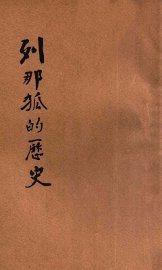 列那狐的歷史